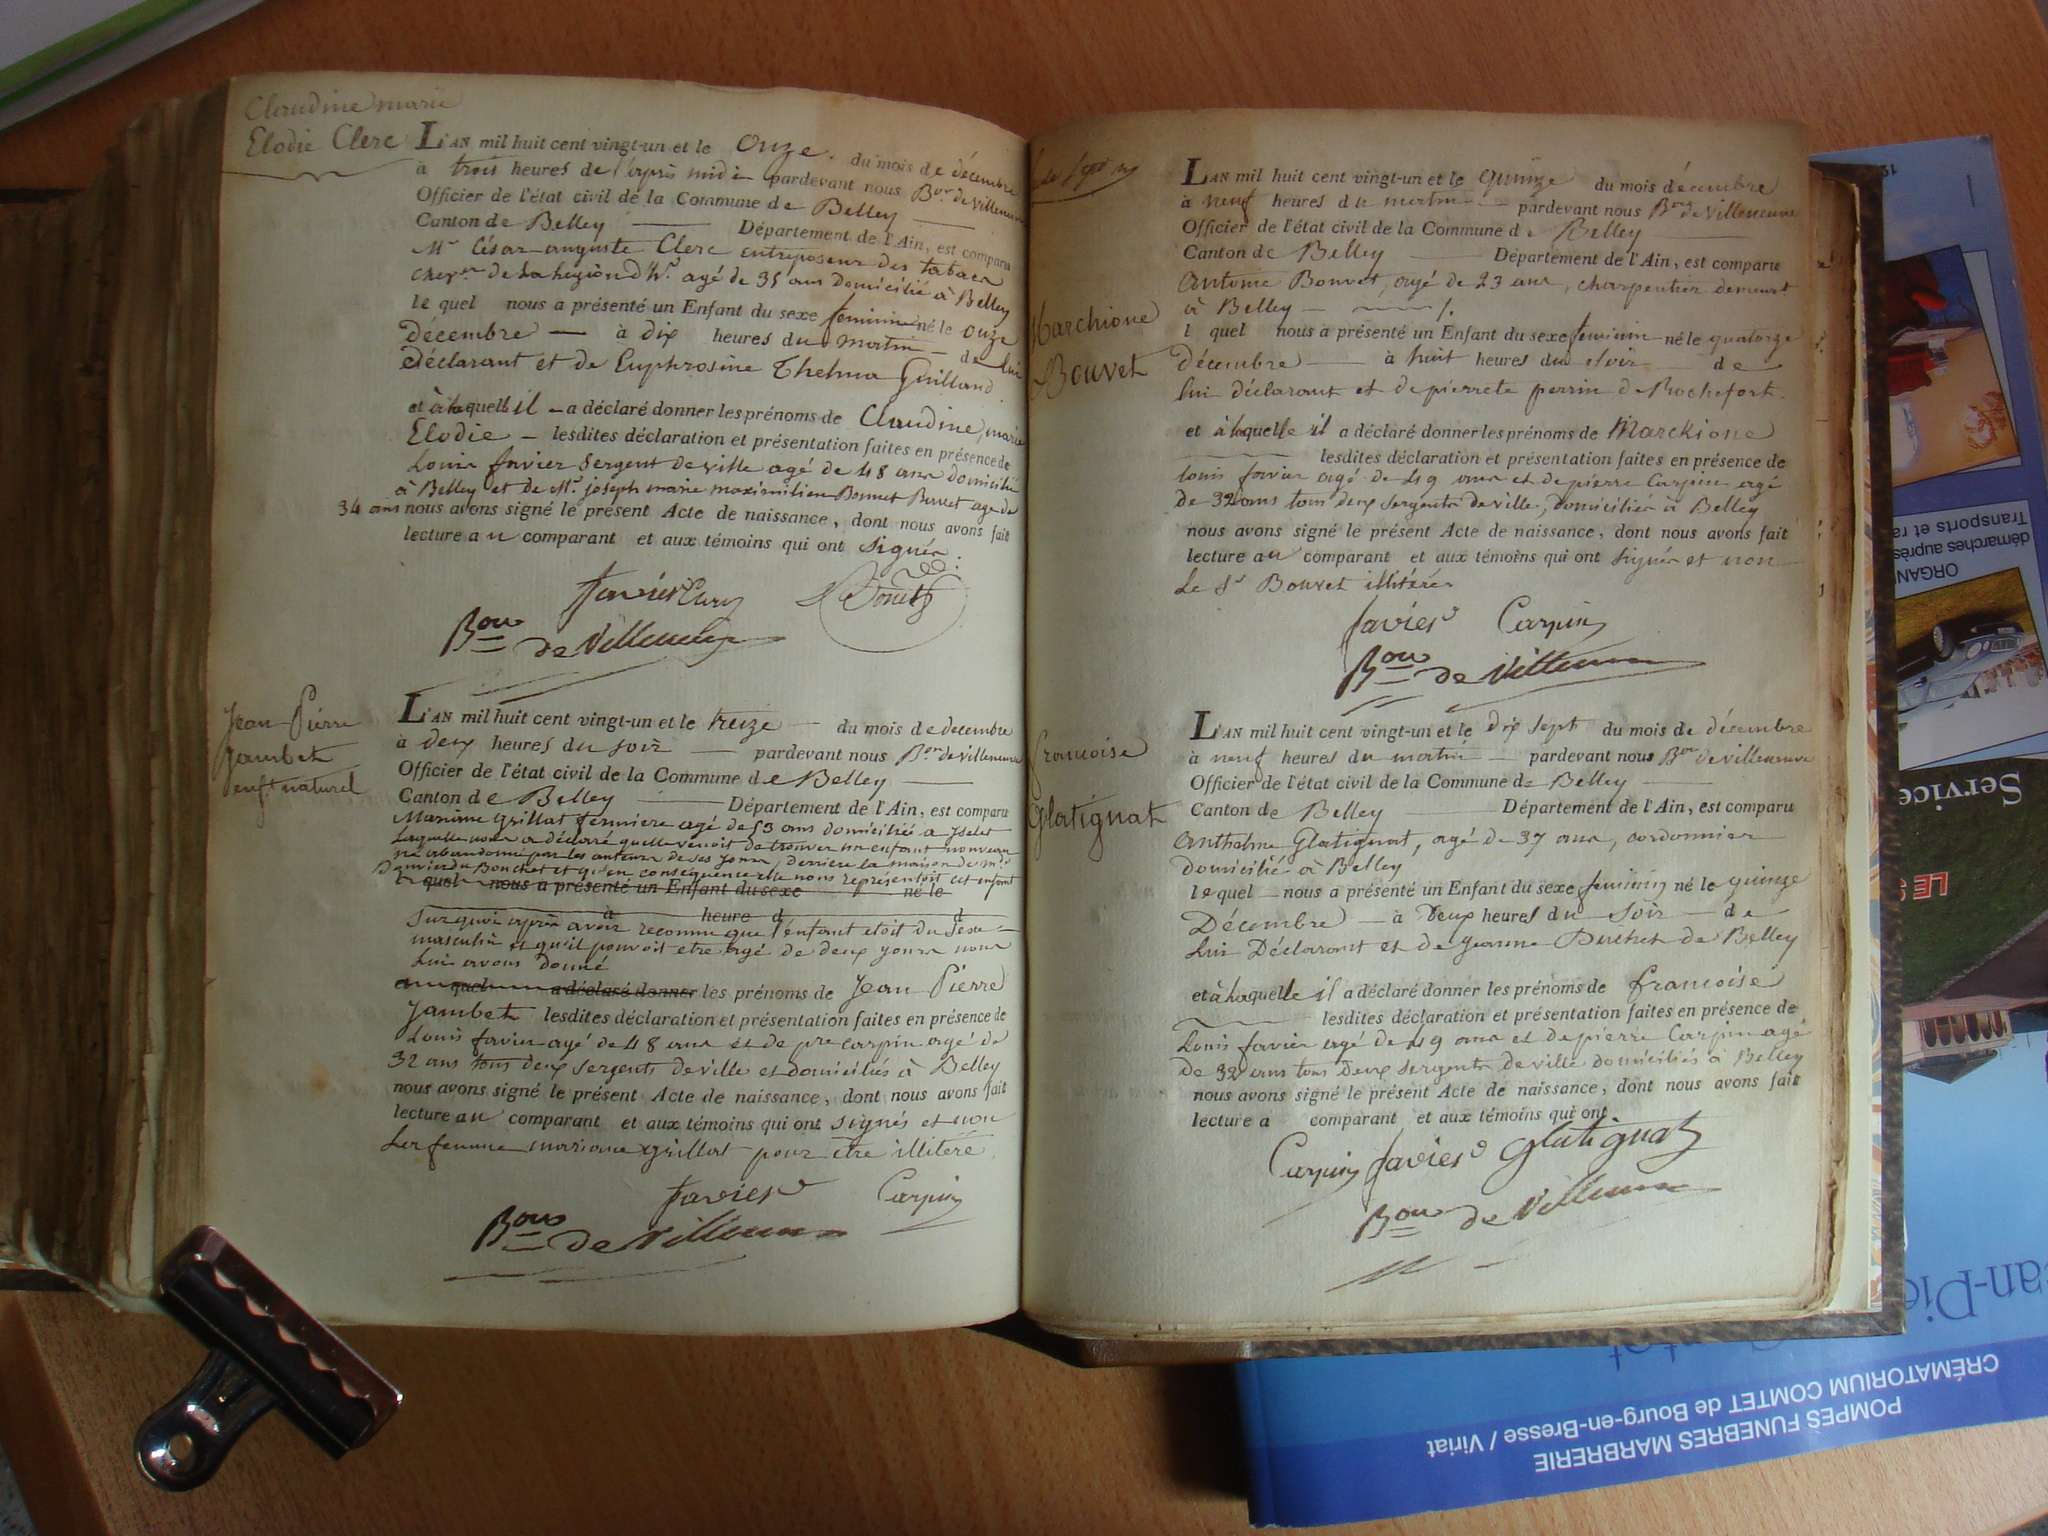 Claudine marie
Elodie Clerc
L'AN mil huit cent vingt-un et le Onze. du mois de décembre
à trois heures de l'après midi pardevant nous Bon de Villeneuve
Officier de l'état civil de la Commune de Belley
Canton de Belley Département de l'Ain, est comparu
Mr César auguste Clerc entreposeur des tabacs
de la Légion d'hr agé de 35 ans domicilié à Belley
le quel nous a présenté un Enfant du sexe feminin né le onze
Décembre à dix heures du matin de lui
déclarant et de Euphrosine Thelma Guilland
et à laquelle il a déclaré donner les prénoms de Claudine, marie
Elodie lesdites déclaration et présentation faites en présence de
Louis favier Sergent de ville agé de 48 ans domicilié
à Belley et de Mr joseph marie maximilien Bonnet agé de
34 ans nous avons signé le présent Acte de naissance, dont nous avons fait
lecture au comparant et aux témoins qui ont signés.
Favier Clerc
Bon de Villeneuve
Jean Pierre
Jambet
enft naturel
L'AN mil huit cent vingt-un et le treize du mois de decembre
à deux heures du soir pardevant nous Bon de Villeneuve
Officier de l'état civil de la Commune de Belley
Canton de Belley Département de l'Ain, est comparu
Mariane Grillat fermiere agé de 53 ans domiciliée a
laquelle nous a déclaré quelle venoit de trouver un enfant nouveau
né abandonné par les auteurs de ses jours, derriere la maison de mr
du Bouchet et qu'en conséquence elle nous représentoit cet enfant
le quel nous a présenté un Enfant du sexe né le
à heure d d
Sur quoi après avoir reconnu que l'enfant etoit du sexe
masculin et qu'il pouvoit etre agé de deux jours nous
Lui avons donné
quel a déclaré donner les prénoms de Jean Pierre
Jambet lesdites déclaration et présentation faites en présence de
Louis favier agé de 48 ans et de pre carpin agé de
32 ans tous deux sergents de ville et domiciliés à Belley
nous avons signé le présent Acte de naissance, dont nous avons fait
lecture au comparant et aux témoins qui ont signés et non
La femme mariane grillat pour être illitéré
Favier Carpin
Bon de Villeneuve
Marchione
Bouvet
L'AN mil huit cent vingt-un et le quinze du mois décembre
à neuf heures du matin pardevant nous Bon de Villeneuve
Officier de l'état civil de la Commune de Belley
Canton de Belley Département de l'Ain, est comparu
Antoine Bouvet, agé de 23 ans, charpentier demeurt
à Belley
l quel nous a présenté un Enfant du sexe feminin né le quatorze
décembre à huit heures du soir de
lui déclarant et de pierrete perrin de Rochefort
et à laquelle il a déclaré donner les prénoms de Marckione
lesdites déclaration et présentation faites en présence de
louis favier agé de 49 ans et de pierre Carpin agé
de 32 ans tous deux sergents de ville, domiciliés à Belley
nous avons signé le présent Acte de naissance, dont nous avons fait
lecture au comparant et aux témoins qui ont signés et non
Le Sr Bouvet illitérés
Favier Carpin
Bon de Villeneuve
francoise
Glatignat
L'AN mil huit cent vingt-un et le dix sept du mois de décembre
à neuf heures du matin pardevant nous Bon de Villeneuve
Officier de l'état civil de la Commune de Belley
Canton de Belley Département de l'Ain, est comparu
Anthelme Glatignat, agé de 37 ans, cordonnier
domicilié à Belley
lequel nous a présenté un Enfant du sexe feminin né le quinze
Décembre à deux heures du soir de
Lui Déclarant et de jeanne de Belley
et à laquelle il a déclaré donner les prénoms de francoise
lesdites déclaration et présentation faites en présence de
Louis favier agé de 49 ans et de pierre Carpin agé
de 32 ans tous deux sergents de ville domiciliés à Belley
nous avons signé le présent Acte de naissance, dont nous avons fait
lecture a comparant et aux témoins qui ont
Carpin favier Glatignat
Bon de Villeneuve
démarches auprès
Transports et ra
ORGAN
Service
LE S
POMPES FUNEBRES MARBRERIE
CRÉMATORIUM COMTET de Bourg-en-Bresse / Viriat